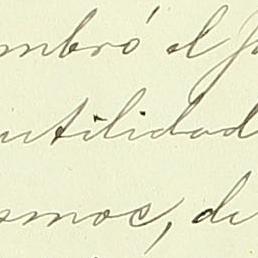 mbró el
utilidad
smos, de